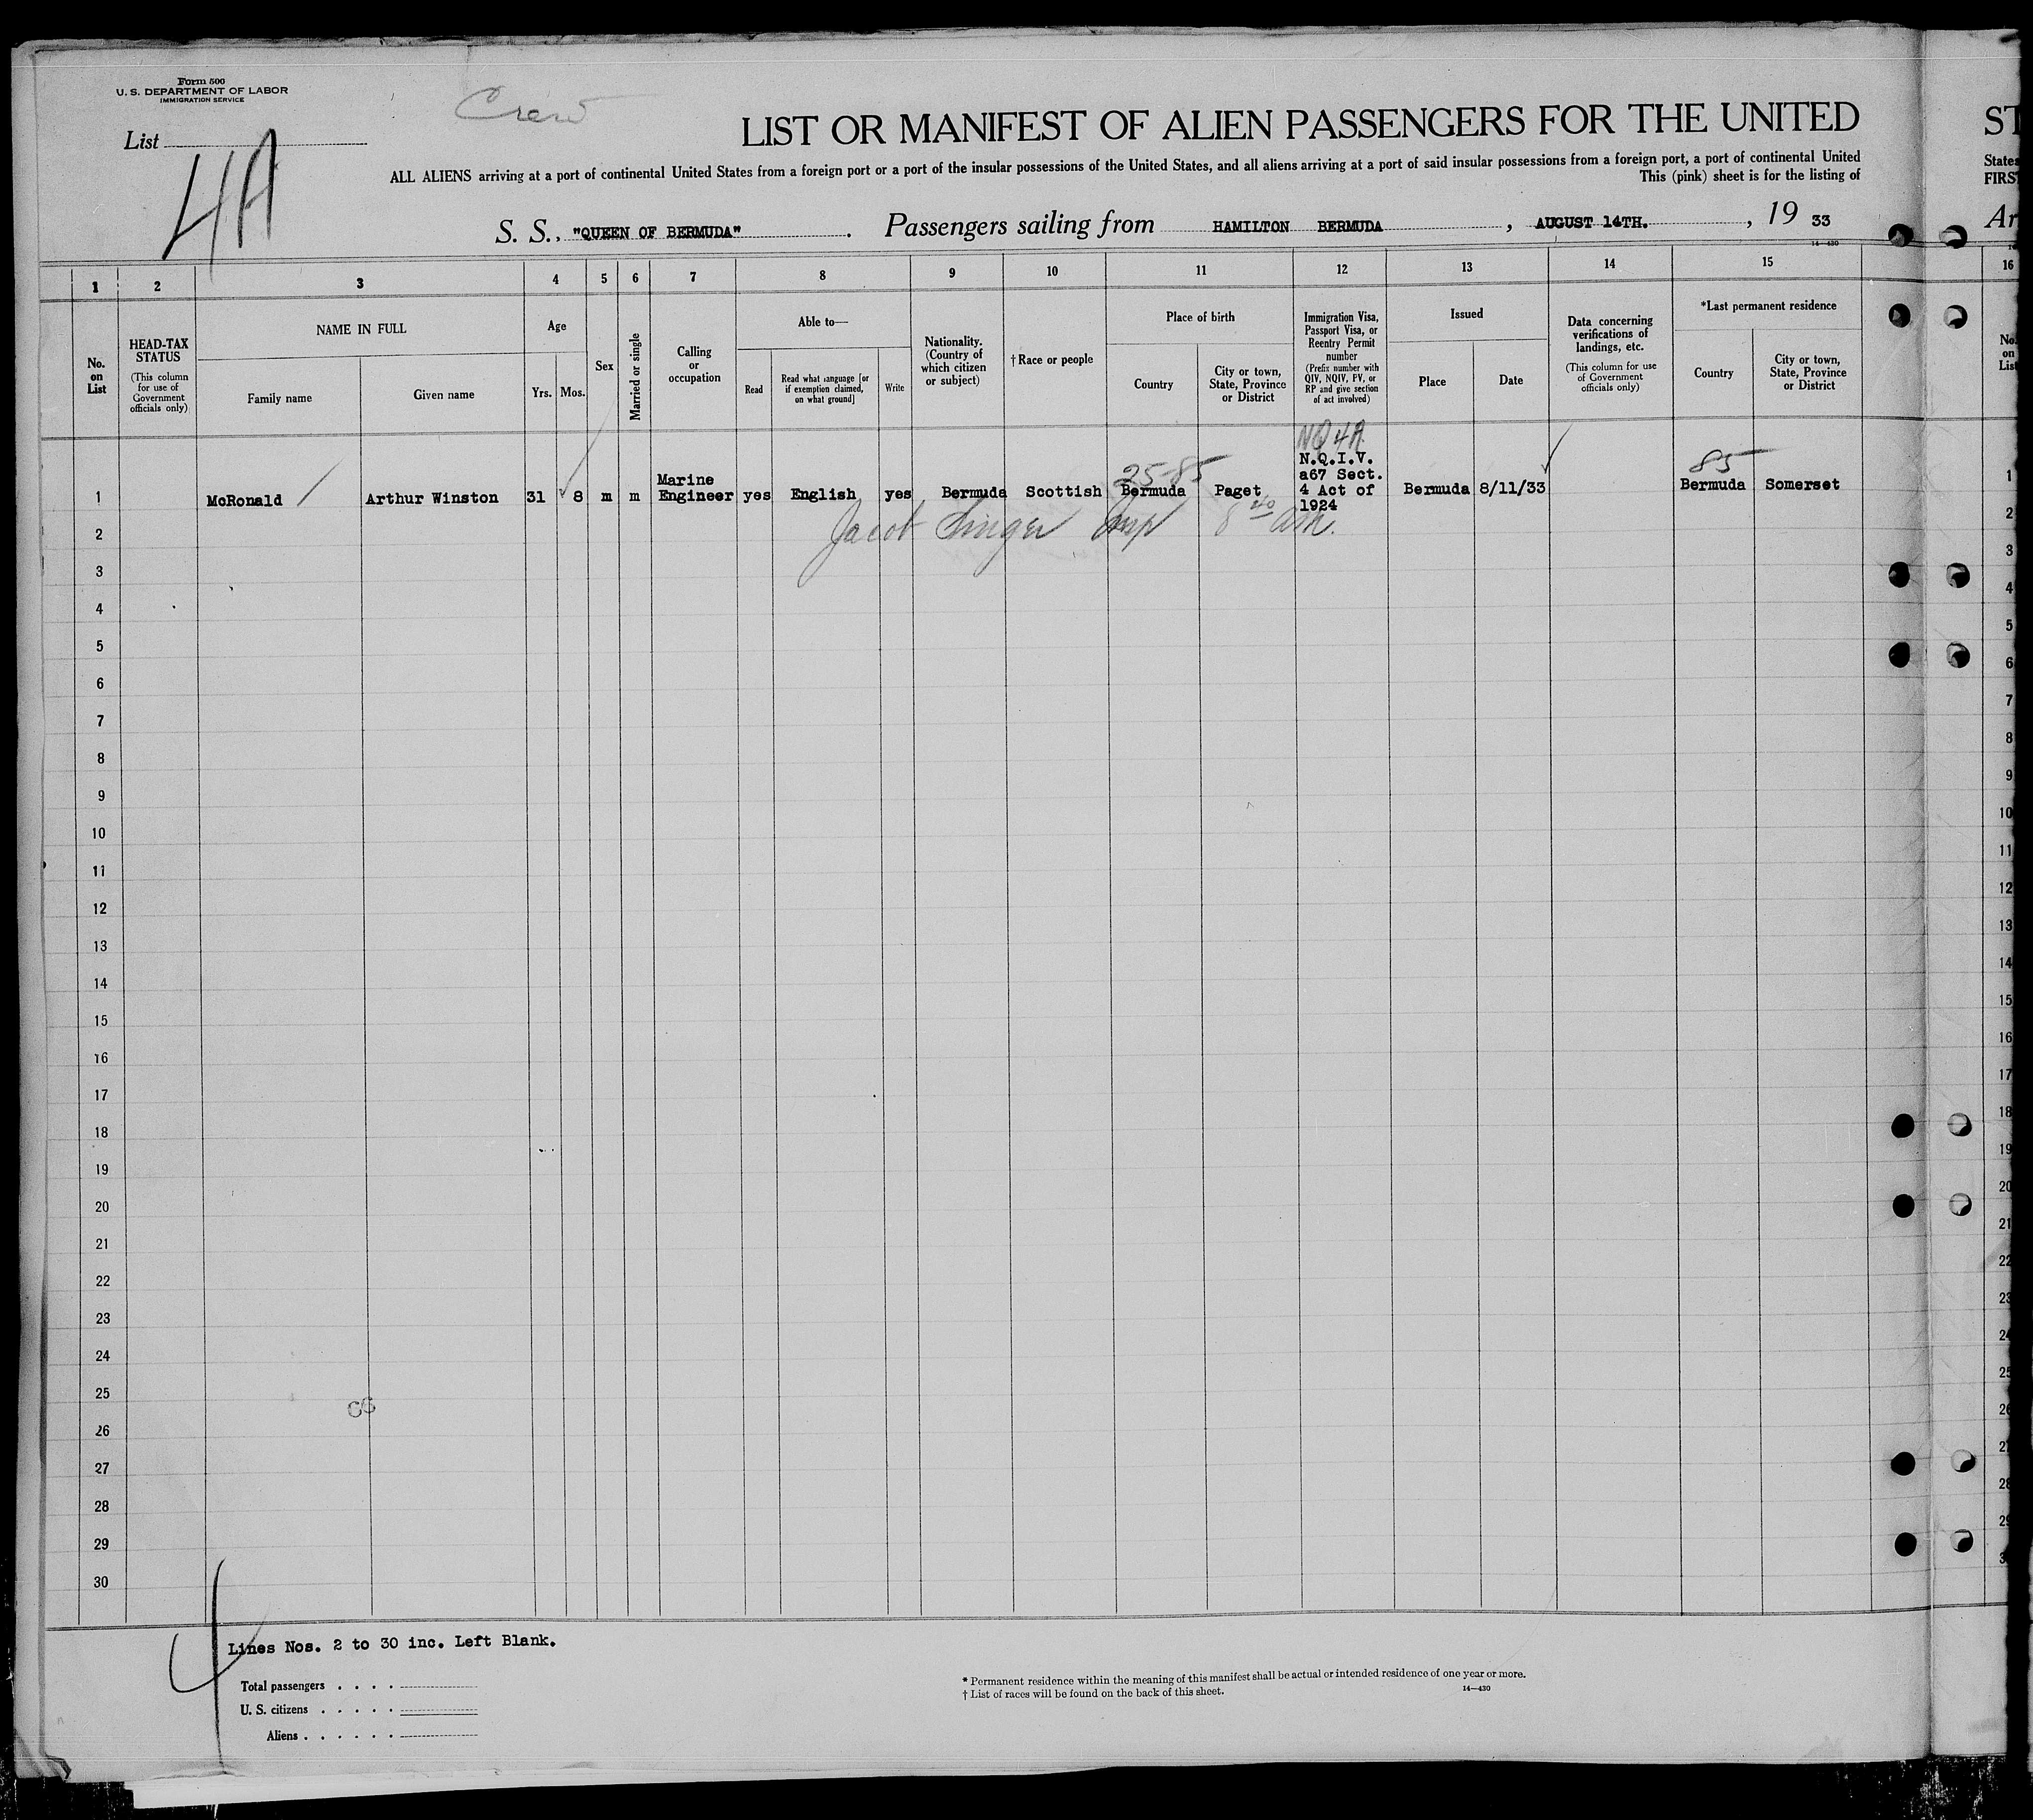 Form 500
U. S. DEPARTMENT OF LABOR
IMMIGRATION SERVICE
Crew
List
4A
LIST OR MANIFEST OF ALIEN PASSENGERS FOR THE UNITED
ST
ALL ALIENS arriving at a port of continental United States from a foreign port or a port of the insular possessions of the United States, and all aliens arriving at a port of said insular possessions from a foreign port, a port of continental United
States
This (pink) sheet is for the listing of
FIRST
S. S., "QUEEN OF BERMUDA". Passengers sailing from HAMILTON BERMUDA, AUGUST 14TH., 19 33
Ar
14—430
1 2 3 4 5 6 7 8 9 10 11 12 13 14 15 16
No. on List
HEAD-TAX STATUS
(This column for use of Government officials only)
NAME IN FULL
Family name
Given name
Age
Yrs.
Mos.
Sex
Married or single
Calling or occupation
Able to—
Read
Read what language [or if exemption claimed, on what ground]
Write
Nationality. (Country of which citizen or subject)
†Race or people
Place of birth
Country
City or town, State, Province or District
Immigration Visa, Passport Visa, or Reentry Permit number
(Prefix number with QIV, NQIV, PV, or RP and give section of act involved)
Issued
Place
Date
Data concerning verifications of landings, etc.
(This column for use of Government officials only)
*Last permanent residence
Country
City or town, State, Province or District
No. on List
NQ 4A
25-85
85
1 McRonald Arthur Winston 31 8 m m Marine Engineer yes English yes Bermuda Scottish Bermuda Paget N.Q.I.V. a67 Sect. 4 Act of 1924 Bermuda 8/11/33 Bermuda Somerset 1
Jacob Singer Insp 8 40 am.
2 2
3 3
4 4
5 5
6 6
7 7
8 8
9 9
10 10
11 11
12 12
13 13
14 14
15 15
16 16
17 17
18 18
19 19
20 20
21 21
22 22
23 23
24 24
25 25
26 26
27 27
28 28
29 29
30 3
4
Lines Nos. 2 to 30 inc. Left Blank.
Total passengers . . . .
U. S. citizens . . . . .
Aliens . . . . . .
* Permanent residence within the meaning of this manifest shall be actual or intended residence of one year or more.
† List of races will be found on the back of this sheet.
14—430